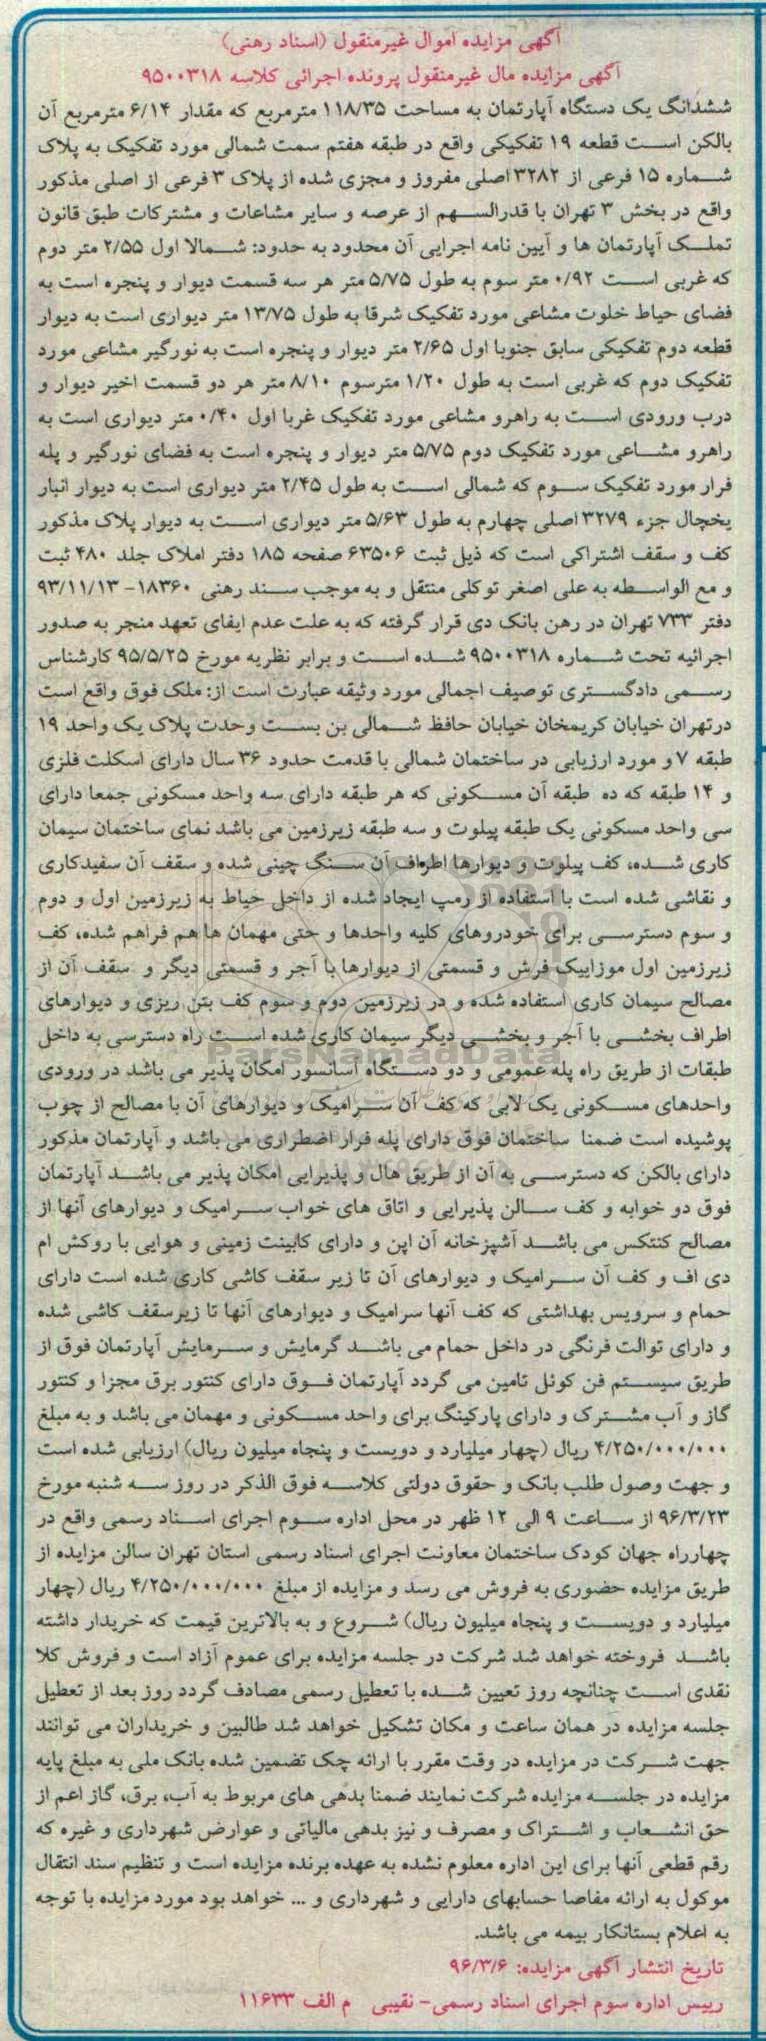 آگهی مزایده اموال غیرمنقول (اسناد رهنی)
آگهی مزایده مال غیرمنقول پرونده اجرائی کلاسه ۹۵۰۰۳۱۸
ششدانگ یک دستگاه آپارتمان به مساحت ۱۱۸/۳۵ مترمربع که مقدار ۶/۱۴ مترمربع آن
بالکن است قطعه ۱۹ تفکیکی واقع در طبقه هفتم سمت شمالی مورد تفکیک به پلاک
شماره ۱۵ فرعی از ۳۲۸۲ اصلی مفروز و مجزی شده از پلاک ۳ فرعی از اصلی مذکور
واقع در بخش ۳ تهران با قدرالسهم از عرصه و سایر مشاعات و مشترکات طبق قانون
تملک آپارتمان ها و آیین نامه اجرایی آن محدود به حدود: شمالا اول ۲/۵۵ متر دوم
که غربی است ۰/۹۲ متر سوم به طول ۵/۷۵ متر هر سه قسمت دیوار و پنجره است به
فضای حیاط خلوت مشاعی مورد تفکیک شرقا به طول ۱۳/۷۵ متر دیواری است به دیوار
قطعه دوم تفکیکی سابق جنوبا اول ۲/۶۵ متر دیوار و پنجره است به نورگیر مشاعی مورد
تفکیک دوم که غربی است به طول ۱/۲۰ مترسوم ۸/۱۰ متر هر دو قسمت اخیر دیوار و
درب ورودی است به راهرو مشاعی مورد تفکیک غربا اول ۰/۴۰ متر دیواری است به
راهرو مشاعی مورد تفکیک دوم ۵/۷۵ متر دیوار و پنجره است به فضای نورگیر و پله
فرار مورد تفکیک سوم که شمالی است به طول ۲/۴۵ متر دیواری است به دیوار انبار
یخچال جزء ۳۲۷۹ اصلی چهارم به طول ۵/۶۳ متر دیواری است به دیوار پلاک مذکور
کف و سقف اشتراکی است که ذیل ثبت ۶۳۵۰۶ صفحه ۱۸۵ دفتر املاک جلد ۴۸۰ ثبت
و مع الواسطه به علی اصغر توکلی منتقل و به موجب سند رهنی ۱۸۳۶۰- ۹۳/۱۱/۱۳
دفتر ۷۳۳ تهران در رهن بانک دی قرار گرفته که به علت عدم ایفای تعهد منجر به صدور
اجرائیه تحت شماره ۹۵۰۰۳۱۸ شده است و برابر نظریه مورخ ۹۵/۵/۲۵ کارشناس
رسمی دادگستری توصیف اجمالی مورد وثیقه عبارت است از: ملک فوق واقع است
درتهران خیابان کریمخان خیابان حافظ شمالی بن بست وحدت پلاک یک واحد ۱۹
طبقه ۷ و مورد ارزیابی در ساختمان شمالی با قدمت حدود ۳۶ سال دارای اسکلت فلزی
و ۱۴ طبقه که ده طبقه آن مسکونی که هر طبقه دارای سه واحد مسکونی جمعا دارای
سی واحد مسکونی یک طبقه پیلوت و سه طبقه زیرزمین می باشد نمای ساختمان سیمان
کاری شده، کف پیلوت و دیوارها اطراف آن سنگ چینی شده و سقف آن سفیدکاری
و نقاشی شده است با استفاده از رمپ ایجاد شده از داخل حیاط به زیرزمین اول و دوم
و سوم دسترسی برای خودروهای کلیه واحدها و حتی مهمان ها هم فراهم شده، کف
زیرزمین اول موزاییک فرش و قسمتی از دیوارها با آجر و قسمتی دیگر و سقف آن از
مصالح سیمان کاری استفاده شده و در زیرزمین دوم و سوم کف بتن ریزی و دیوارهای
اطراف بخشی با آجر و بخشی دیگر سیمان کاری شده است راه دسترسی به داخل
ParsNamadData
طبقات از طریق راه پله عمومی و دو دستگاه آسانسور امکان پذیر می باشد در ورودی
واحدهای مسکونی یک لابی که کف آن سرامیک و دیوارهای آن با مصالح از چوب
پوشیده است ضمنا ساختمان فوق دارای پله فرار اضطراری می باشد و آپارتمان مذکور
دارای بالکن که دسترسی به آن از طریق هال و پذیرایی امکان پذیر می باشد آپارتمان
فوق دو خوابه و کف سالن پذیرایی و اتاق های خواب سرامیک و دیوارهای آنها از
مصالح کنتکس می باشد آشپزخانه آن اپن و دارای کابینت زمینی و هوایی با روکش ام
دی اف و کف آن سرامیک و دیوارهای آن تا زیر سقف کاشی کاری شده است دارای
حمام و سرویس بهداشتی که کف آنها سرامیک و دیوارهای آنها تا زیرسقف کاشی شده
و دارای توالت فرنگی در داخل حمام می باشد گرمایش و سرمایش آپارتمان فوق از
طریق سیستم فن کوئل تامین می گردد آپارتمان فوق دارای کنتور برق مجزا و کنتور
گاز و آب مشترک و دارای پارکینگ برای واحد مسکونی و مهمان می باشد و به مبلغ
۴/۲۵۰/۰۰۰/۰۰۰ ریال (چهار میلیارد و دویست و پنجاه میلیون ریال) ارزیابی شده است
و جهت وصول طلب بانک و حقوق دولتی کلاسه فوق الذکر در روز سه شنبه مورخ
۹۶/۳/۲۳ از ساعت ۹ الی ۱۲ ظهر در محل اداره سوم اجرای اسناد رسمی واقع در
چهارراه جهان کودک ساختمان معاونت اجرای اسناد رسمی استان تهران سالن مزایده از
طریق مزایده حضوری به فروش می رسد و مزایده از مبلغ ۴/۲۵۰/۰۰۰/۰۰۰ ریال (چهار
میلیارد و دویست و پنجاه میلیون ریال) شروع و به بالاترین قیمت که خریدار داشته
باشد فروخته خواهد شد شرکت در جلسه مزایده برای عموم آزاد است و فروش کلا
نقدی است چنانچه روز تعیین شده با تعطیل رسمی مصادف گردد روز بعد از تعطیل
جلسه مزایده در همان ساعت و مکان تشکیل خواهد شد طالبین و خریداران می توانند
جهت شرکت در مزایده در وقت مقرر با ارائه چک تضمین شده بانک ملی به مبلغ پایه
مزایده در جلسه مزایده شرکت نمایند ضمنا بدهی های مربوط به آب، برق، گاز اعم از
حق انشعاب و اشتراک و مصرف و نیز بدهی مالیاتی و عوارض شهرداری و غیره که
رقم قطعی آنها برای این اداره معلوم نشده به عهده برنده مزایده است و تنظیم سند انتقال
موکول به ارائه مفاصا حسابهای دارایی و شهرداری و ... خواهد بود مورد مزایده با توجه
به اعلام بستانکار بیمه می باشد.
تاریخ انتشار آگهی مزایده: ۹۶/۳/۶
رییس اداره سوم اجرای اسناد رسمی- نقیبی م الف ۱۱۶۳۳